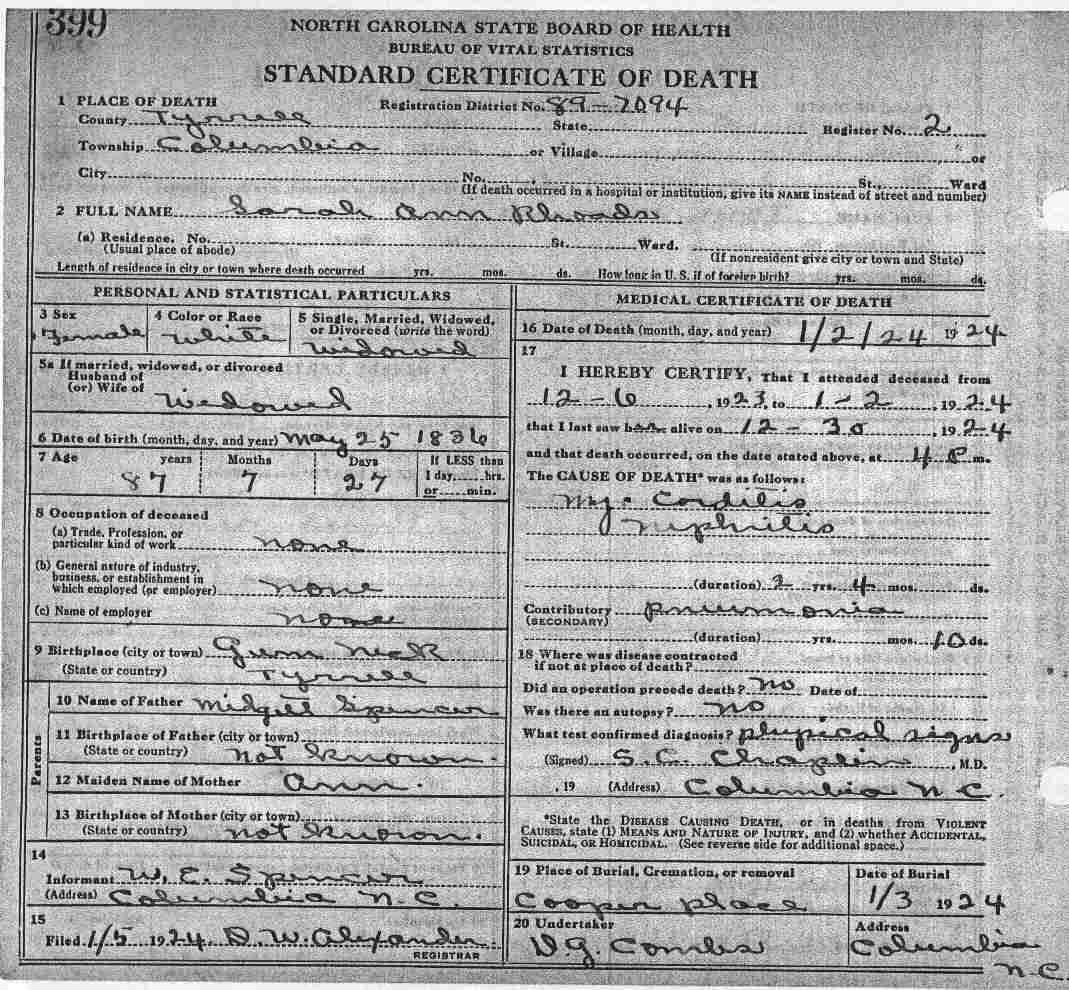 399
NORTH CAROLINA STATE BOARD OF HEALTH
BUREAU OF VITAL STATISTICS
STANDARD CERTIFICATE OF DEATH
1 PLACE OF DEATH Registration District No. 89-7094
County Tyrrell State Register No. 2
Township Columbia or Village or
City No. St., Ward
(If death occurred in a hospital or institution, give its NAME instead of street and number)
2 FULL NAME Sarah Ann Rhoads
(a) Residence. No. St. Ward.
(Usual place of abode) (If nonresident give city or town and State)
Length of residence in city or town where death occurred yrs. mos. ds. How long in U. S. if of foreign birth? yrs. mos. ds.
PERSONAL AND STATISTICAL PARTICULARS
3 Sex 4 Color or Race 5 Single, Married, Widowed,
or Divorced (write the word)
Female White Widowed
5a If married, widowed, or divorced
Husband of
(or) Wife of Widowed
6 Date of birth (month, day, and year) May 25 1836
7 Age years Months Days If LESS than
1 day, hrs.
87 7 27 or min.
8 Occupation of deceased
(a) Trade, Profession, or
particular kind of work none
(b) General nature of industry,
business, or establishment in
which employed (or employer) none
(c) Name of employer none
9 Birthplace (city or town) Gum Neck
(State or country) Tyrrell
Parents
10 Name of Father Midgett Spencer
11 Birthplace of Father (city or town)
(State or country) not known.
12 Maiden Name of Mother Ann.
13 Birthplace of Mother (city or town)
(State or country) not known.
14
Informant W. E. Spencer
(Address) Columbia N.C.
15
Filed 1/5 1924 D. W. Alexander
REGISTRAR
MEDICAL CERTIFICATE OF DEATH
16 Date of Death (month, day, and year) 1/2/24 1924
17
I HEREBY CERTIFY, That I attended deceased from
12-6, 1923, to 1-2, 1924
that I last saw her alive on 12-30, 1924
and that death occurred, on the date stated above, at 4 P m.
The CAUSE OF DEATH* was as follows:
Myo Corditis
Niphritis
(duration) 2 yrs. 4 mos. ds.
Contributory pneumonia
(SECONDARY)
(duration) yrs. mos. 10 ds.
18 Where was disease contracted
if not at place of death?
Did an operation precede death? no Date of
Was there an autopsy? no
What test confirmed diagnosis? physical signs
(Signed) S. C. Chaplin, M.D.
, 19 (Address) Columbia N.C.
*State the DISEASE CAUSING DEATH, or in deaths from VIOLENT
CAUSES, state (1) MEANS AND NATURE OF INJURY, and (2) whether ACCIDENTAL,
SUICIDAL, OR HOMICIDAL. (See reverse side for additional space.)
19 Place of Burial, Cremation, or removal Date of Burial
Cooper place 1/3 1924
20 Undertaker Address
Combs Columbia
N.C.